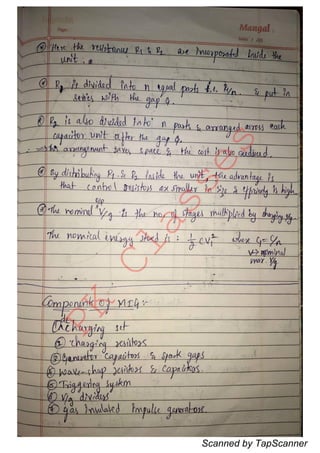 Page:
Mangal
Here the resistance R1 & R2 are incorporated inside the
unit.
R1 is divided into n equal parts & put in
series with the gap
R2 is also divided into n parts & arranged across each
capacitor unit after the gap
arrangement saves space & the cost is also reduced.
By distributing R1 & R2 inside the unit, the advantage is
that control resistors are smaller in size & efficiency is high
The nominal o/p V/g is the no. of stages multiplied by charging V/g
The nominal energy stored is : 1/2 C1 V1² where C1 = C/n
V → nominal
max. V/g
Components of MIG:-
① dc charging set
② charging resistors
③ Generator Capacitors & spark gaps
④ Wave-shap resistors & Capacitors.
⑤ Triggering system
⑥ V/g dividers
⑦ gas insulated impulse generators.
PK Classes
Scanned by TapScanner